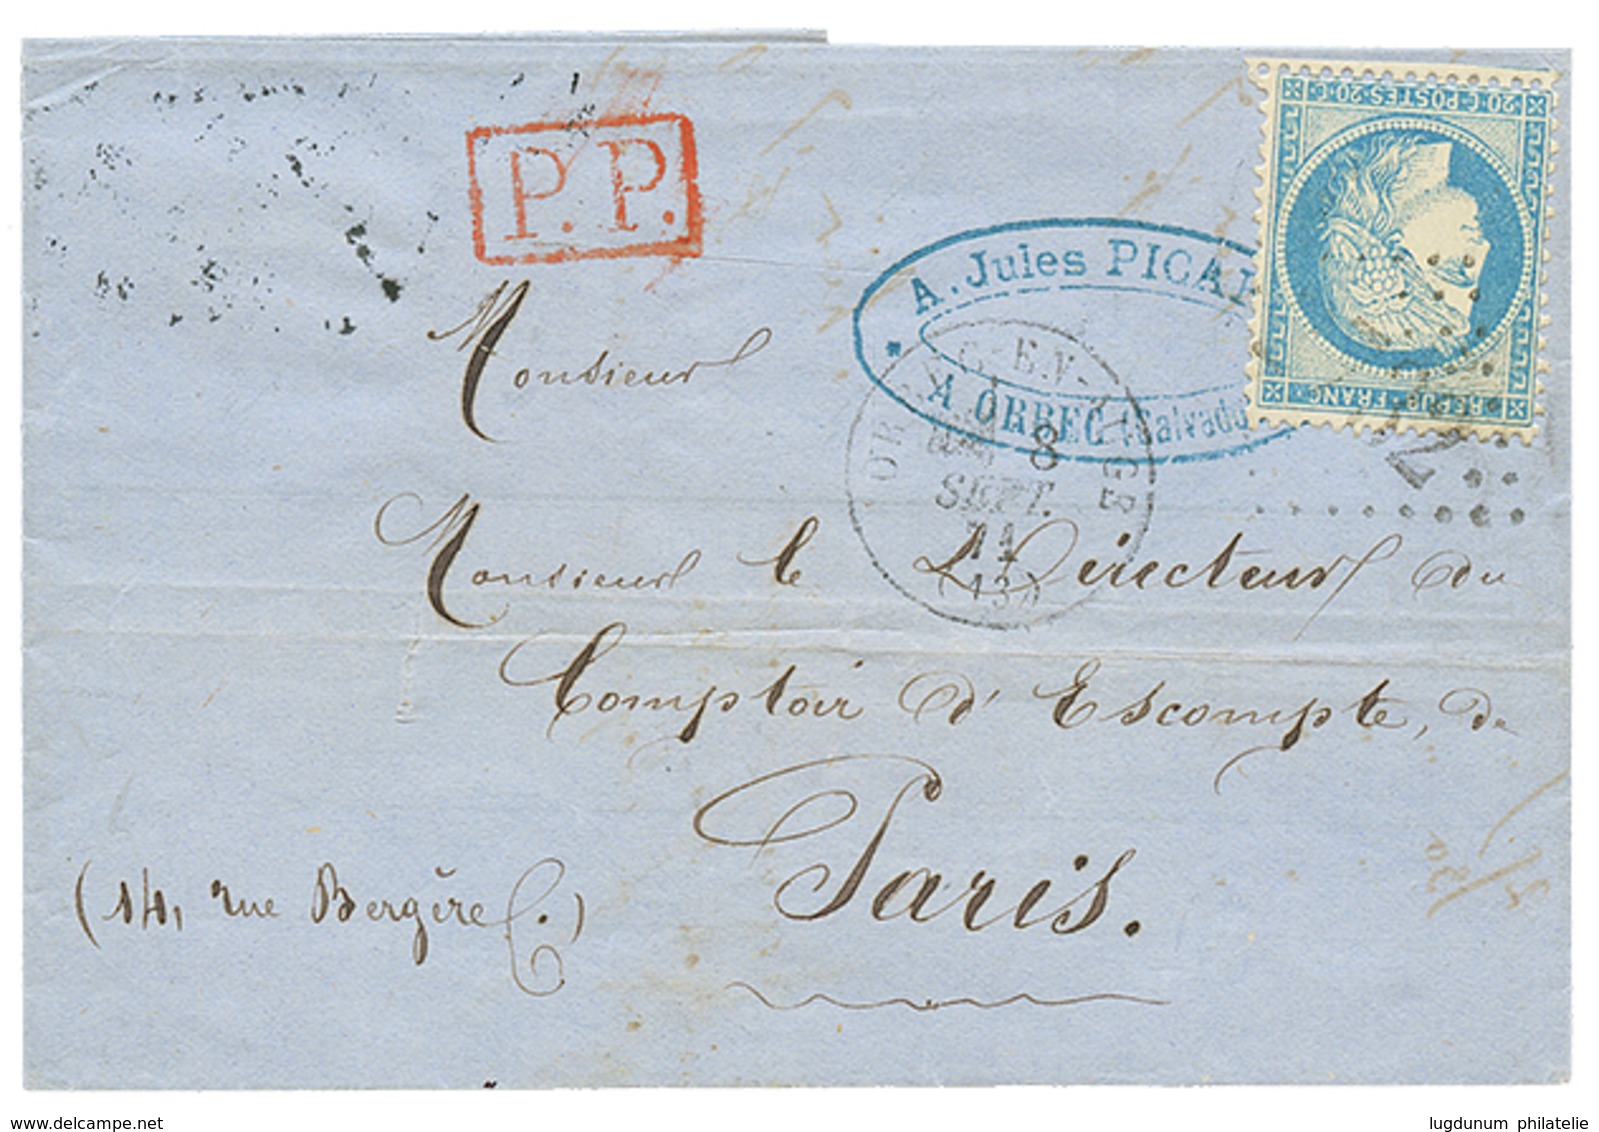 20 C POSTES 20 C
REPUB. FRANC.
P.P.
A. Jules PICAR
A ORBEC (Calvado
ORBEC-EN-AUGE
8
SEPT.
71
(13)
Monsieur
Monsieur le Directeur du
Comptoir d'Escompte, de
Paris.
(14, rue Bergère)
delcampe.net
lugdunum philatelie